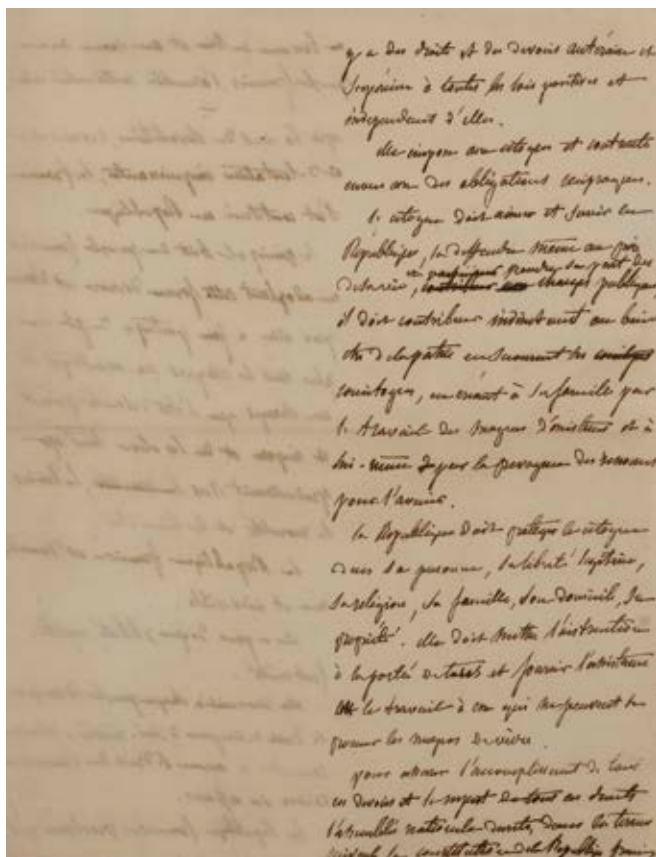 y a des droits et des devoirs antérieurs et
supérieurs à toutes les lois positives et
indépendants d'elles.
elle impose aux citoyens et contracte
envers eux des obligations réciproques.
le citoyen doit aimer et servir la
République, la deffendre même au prix
de sa vie, prendre sa part des
charges publiques
il doit contribuer indirectement au bien
être de la patrie en secourant ses
concitoyens, en créant à sa famille par
le travail des moyens d'existence et à
lui-même par la prévoyance des ressources
pour l'avenir.
la République doit protéger le citoyen
dans sa personne, sa liberté légitime,
sa religion, sa famille, son domicile, sa
propriété. elle doit mettre l'instruction
à la portée de tous et fournir l'assistance
le travail à ceux qui ne peuvent se
procurer les moyens de vivre.
pour assurer l'accomplissement de tous
ces devoirs et le respect de tous ces droits
l'assemblée nationale décrète, dans la teneur
suivante la constitution de la République française